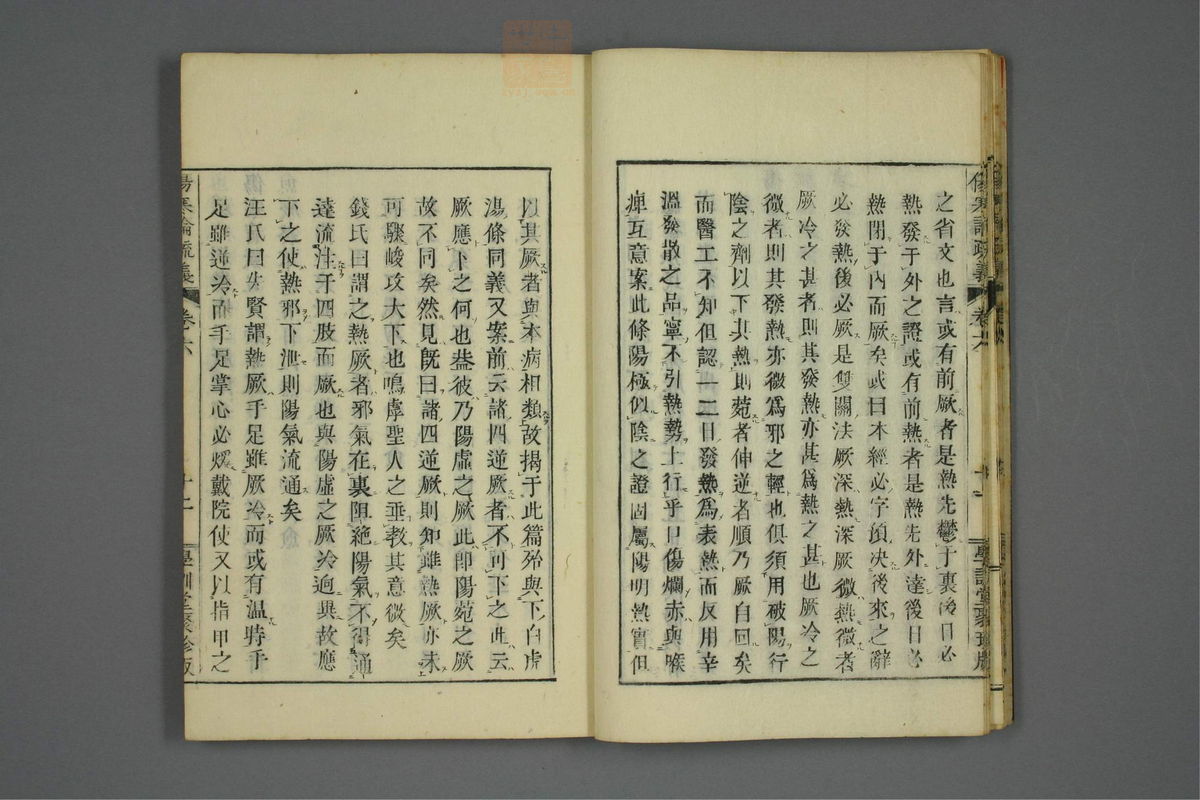 之省文也言或有前厥者是熱先鬱于裏後日必
熱發于外之證或有前熱者是熱先外達後日必
熱閉于內而厥矣或曰本經必字預決後來之辭
必發熱後必厥是雙關法厥深熱深厥微熱微者
厥冷之甚者則其發熱亦甚爲熱之甚也厥冷之
微者則其發熱亦微爲邪之輕也俱須用破陽行
陰之劑以下其熱則菀者伸逆者順乃厥自回矣
而醫工不知但認一二日發熱爲表熱而反用辛
溫發散之品寧不引熱勢上行乎口傷爛赤與喉
痺互意案此條陽極似陰之證固屬陽明熱實但
傷寒論疏義
卷六
十一
學訓堂聚珍版
以其厥者與本病相類故揭于此篇殆與下白虎
湯條同義又案前云諸四逆厥者不可下之此云
厥應下之何也蓋彼乃陽虛之厥此即陽菀之厥
故不同矣然見既曰諸四逆厥則知雖熱厥亦未
可驟峻攻大下也嗚虖聖人之垂教其意微矣
錢氏曰謂之熱厥者邪氣在裏阻絕陽氣不得通
達流注于四肢而厥也與陽虛之厥冷迥異故應
下之使熱邪下泄則陽氣流通矣
汪氏曰先賢謂熱厥手足雖厥冷而或有溫時手
足雖逆冷而手足掌心必煖戴院使又以指甲之
傷寒論疏義
卷六
十二
學訓堂聚珍版